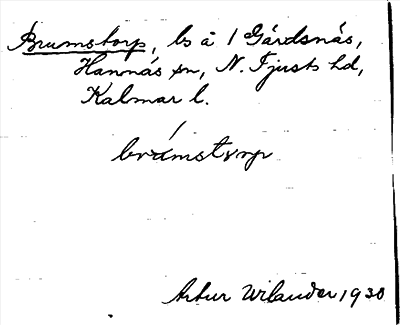 Brumstorp, ls å 1 Gärdsnäs,
Hannäs sn, N. Tjusts hd,
Kalmar l.
brúmstorp
Artur Wilander 1930